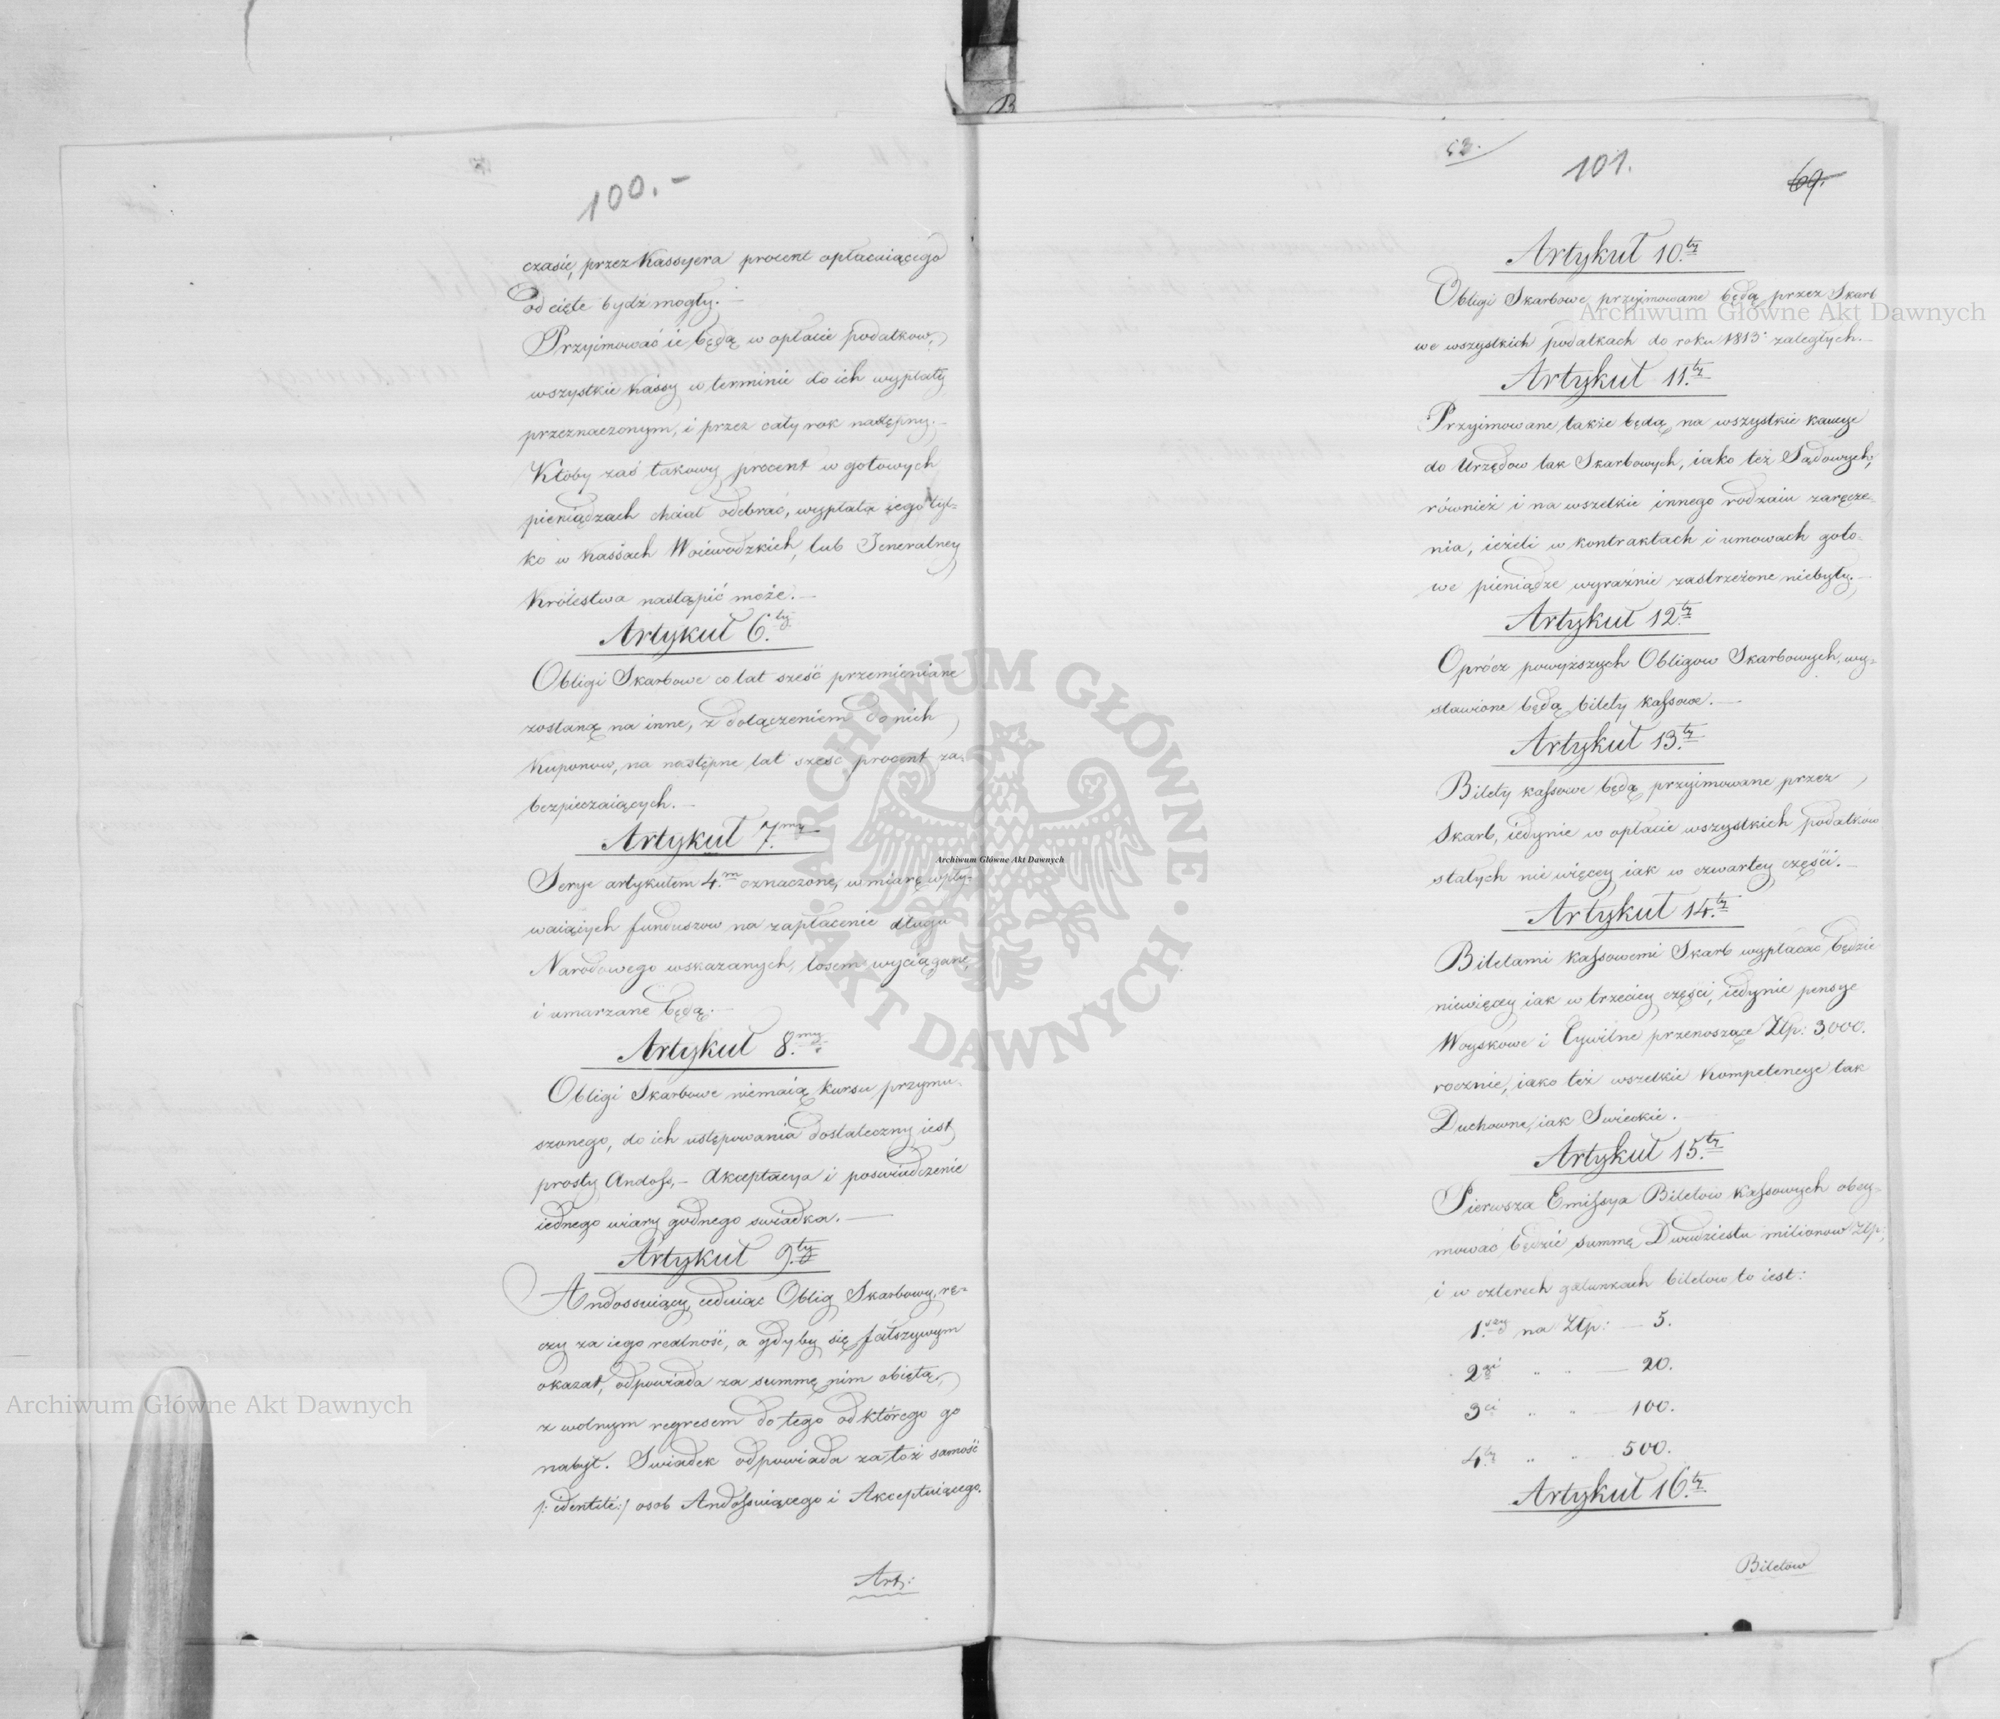 100.-
czasie, przez Kassyera procent opłacaiącego
odcięte bydź mogły.
Przyimować ie będą w opłacie podatkow,
wszystkie Kassy w terminie do ich wypłaty
przeznaczonym, i przez cały rok następny.
Ktoby zaś takowy procent w gotowych
pieniądzach chciał odebrać, wypłata iego tyl-
ko w Kassach Woiewodzkich, lub Jeneralney
Królestwa nastąpić może.
Artykuł 6.ty
Obligi Skarbowe co lat sześć przemieniane
zostaną na inne, z dołączeniem do nich
Kuponow, na następne lat sześć procent za-
bezpieczaiących.
Artykuł 7.my
Serye artykułem 4.m oznaczone, w miarę wpły-
waiących funduszow na zapłacenie długu
Narodowego wskazanych, losem wyciągane,
i umarzane będą.
Artykuł 8.my
Obligi Skarbowe niemaią kursu przymu-
szonego, do ich ustępowania dostateczny iest
prosty Andoss, - Akceptacya i poswiadczenie
iednego wiary godnego swiadka.
Artykuł 9.ty
Andossuiący, ceduiąc Oblig Skarbowy, rę-
czy za iego realność, a gdyby się fałszywym
okazał, odpowiada za summę nim obiętą,
z wolnym regresem do tego od którego go
nabył. Swiadek odpowiada za toż samość
/: identité:/ osob Andossuiącego i Akceptuiącego.
Art:
53.
101.
69.
Artykuł 10.ty
Obligi Skarbowe przyimowane będą przez Skarb
we wszystkich podatkach do roku 1813 zaległych.
Artykuł 11.ty
Przyimowane także będą na wszystkie kaucye
do Urzędow tak Skarbowych, iako też Sądowych,
również i na wszelkie innego rodzaiu zaręcze-
nia, ieżeli w kontraktach i umowach goto-
we pieniądze wyraźnie zastrzeżone niebyły.
Artykuł 12.ty
Oprócz powyższych Obligow Skarbowych, wy-
stawione będą bilety kassowe.
Artykuł 13.ty
Bilety kassowe będą przyimowane przez
Skarb, iedynie w opłacie wszystkich podatków
stałych nie więcey iak w czwartey części.
Artykuł 14.ty
Biletami kassowemi Skarb wypłacać będzie
niewięcey iak w trzeciey części, iedynie pensye
Woyskowe i Cywilne przenoszące Złp: 3,000.
rocznie, iako też wszelkie Kompetencye tak
Duchowne, iak Swieckie.
Artykuł 15.ty
Pierwsza Emissya Biletów kassowych obey-
mować będzie summę Dwudziestu milionow Złp:
i w czterech gatunkach biletów to iest:
1.szy na Złp: — 5.
2gi " " — 20.
3ci " " — 100.
4.ty " " 500.
Artykuł 16.ty
Biletów
Archiwum Główne Akt Dawnych
Archiwum Główne Akt Dawnych
Archiwum Główne Akt Dawnych
ARCHIWUM GŁÓWNE · AKT DAWNYCH ·